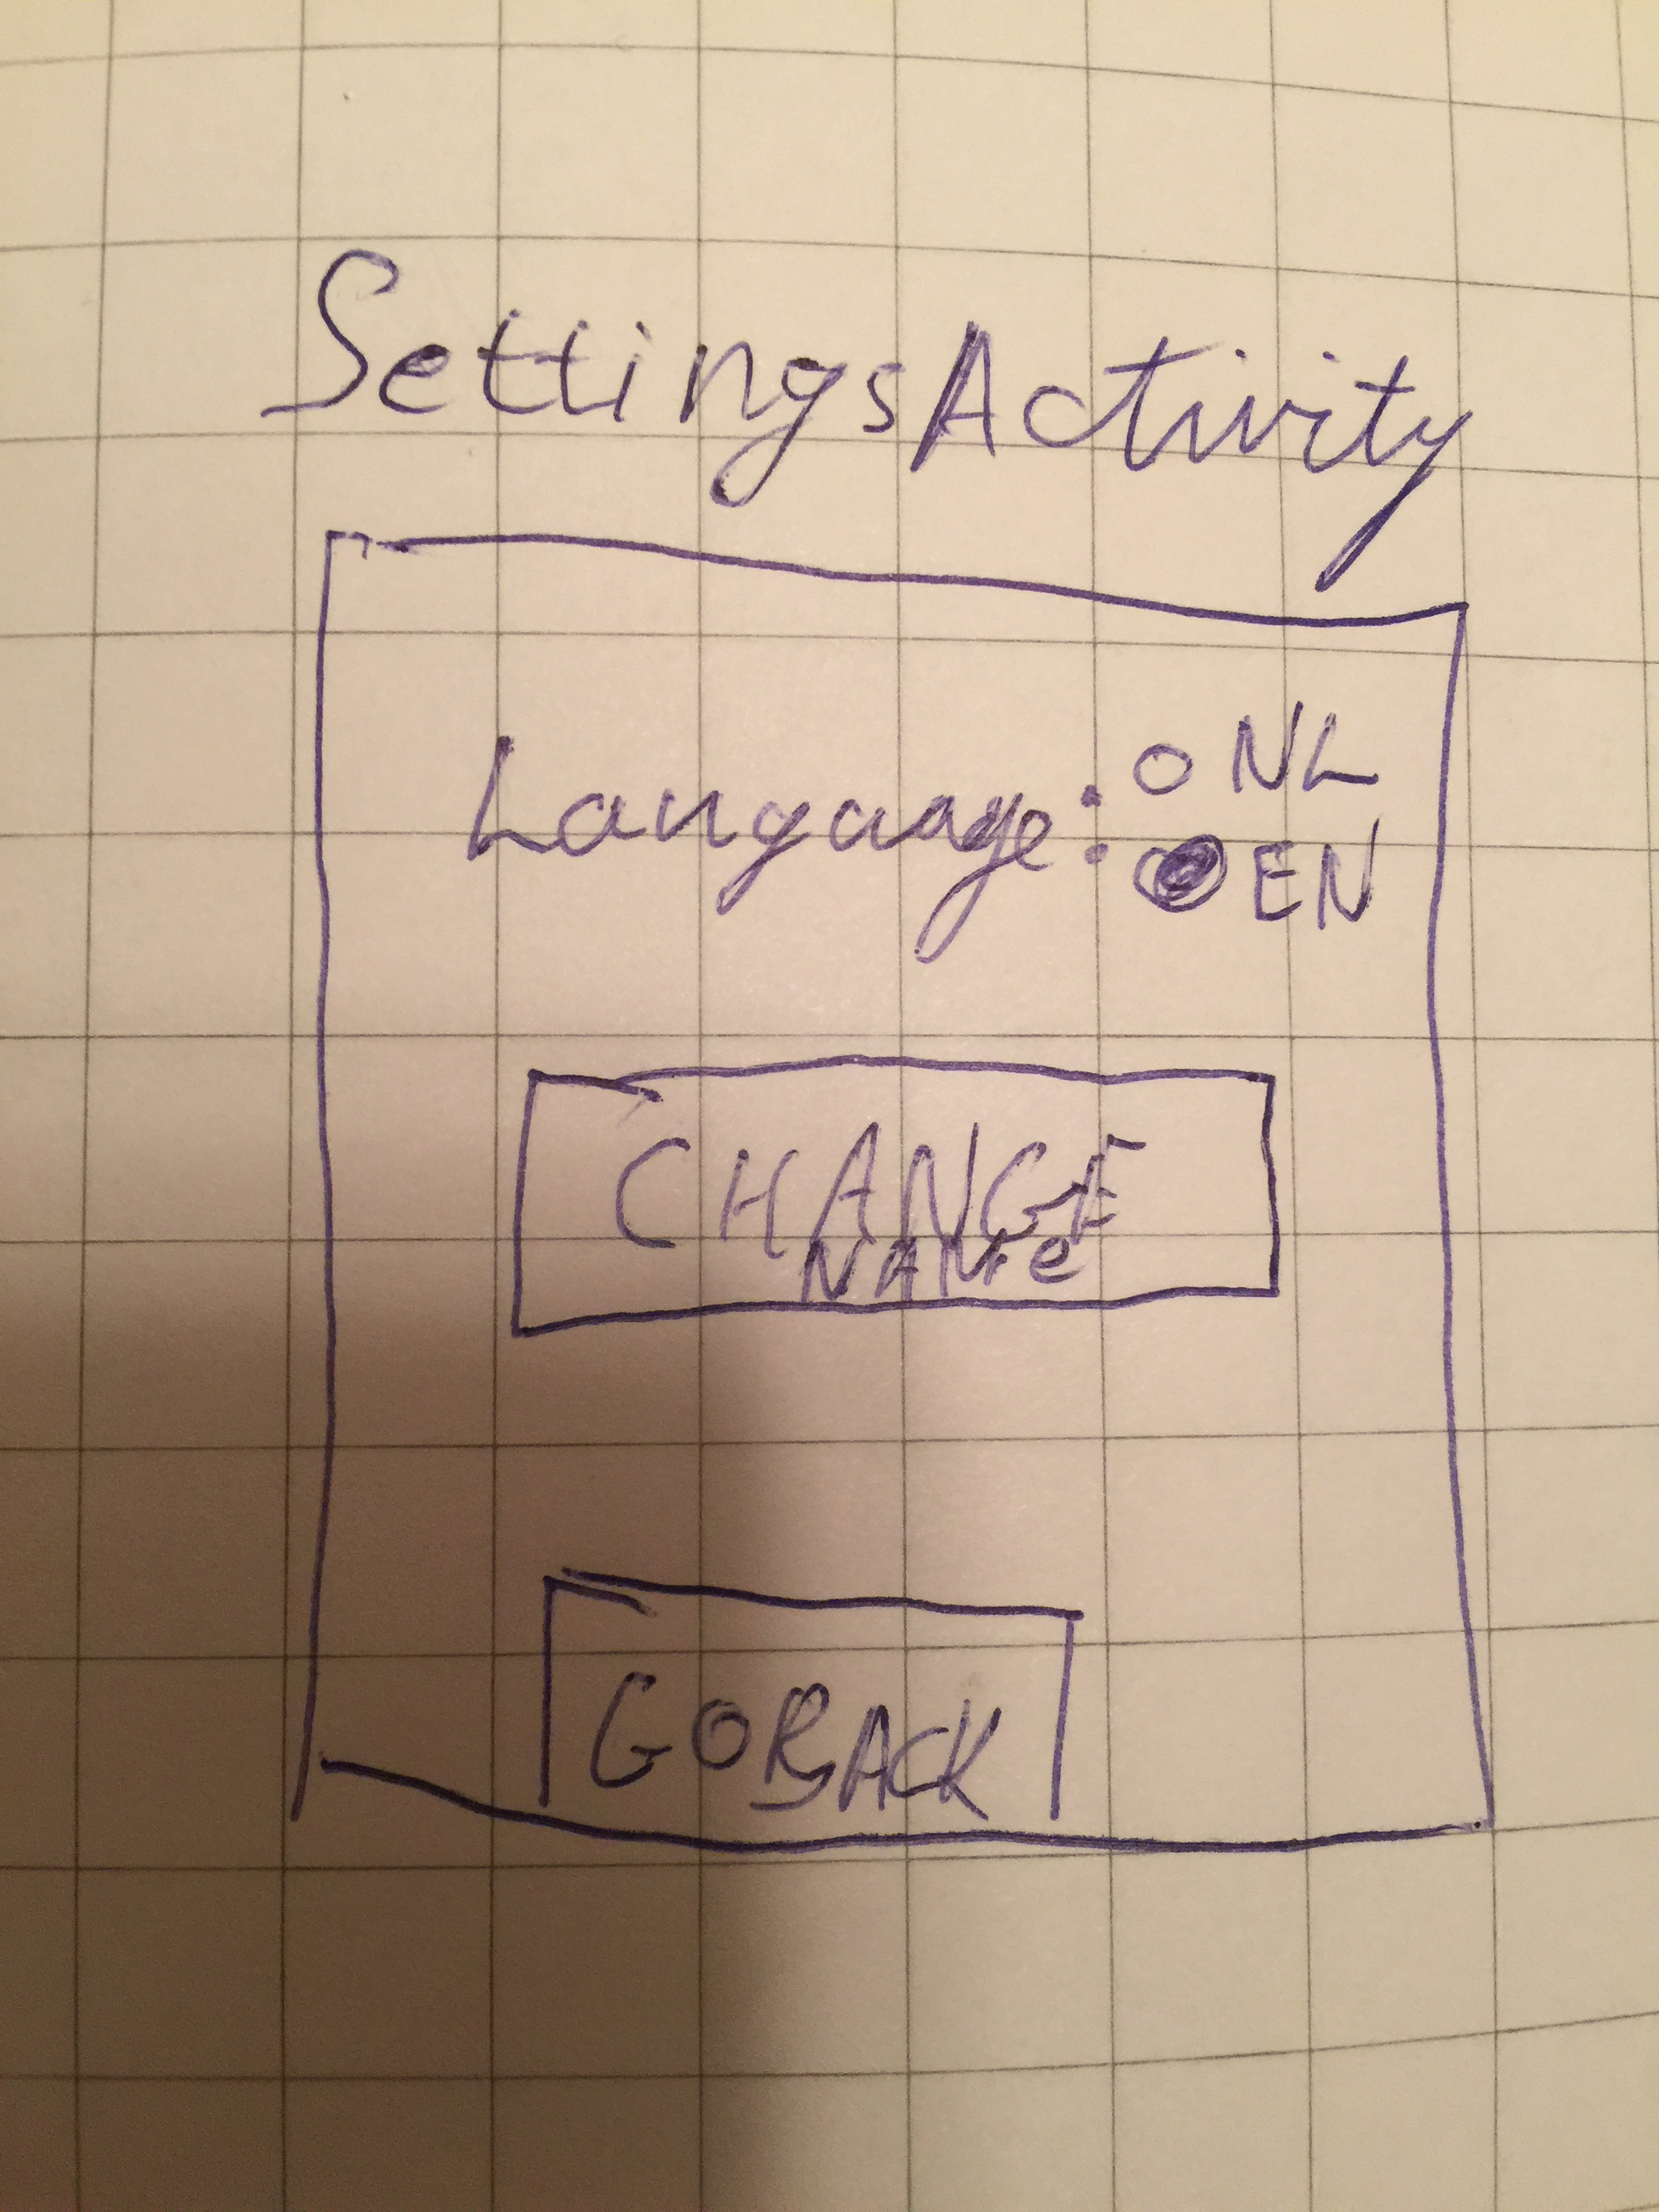 SettingsActivity
Language: O NL
EN
CHANGE
NAME
GO BACK